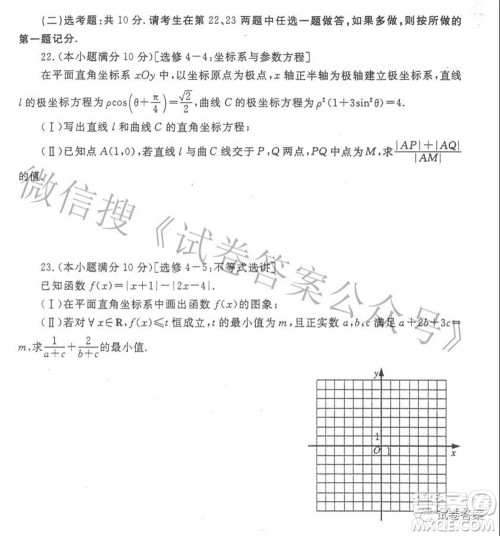 (二)选考题:共 10 分.请考生在第 22、23 两题中任选一题做答,如果多做,则按所做的
第一题记分.
22.(本小题满分 10 分)[选修 4-4:坐标系与参数方程]
在平面直角坐标系 xOy 中,以坐标原点为极点,x 轴正半轴为极轴建立极坐标系,直线
l 的极坐标方程为 ρcos(θ+π/4)=√2/2,曲线 C 的极坐标方程为 ρ²(1+3sin²θ)=4.
(Ⅰ)写出直线 l 和曲线 C 的直角坐标方程;
(Ⅱ)已知点 A(1,0),若直线 l 与曲 C 线交于 P,Q 两点,PQ 中点为 M,求 (|AP|+|AQ|)/|AM|
的值.
23.(本小题满分 10 分)[选修 4-5:不等式选讲]
已知函数 f(x)=|x+1|-|2x-4|.
(Ⅰ)在平面直角坐标系中画出函数 f(x)的图象;
(Ⅱ)若对∀x∈R,f(x)≤t 恒成立,t 的最小值为 m,且正实数 a,b,c 满足 a+2b+3c=
m,求 1/(a+c)+2/(b+c) 的最小值.
y
1
O 1 x
微信搜《试卷答案公众号》
试卷答案
答案圈
MXQE.COM